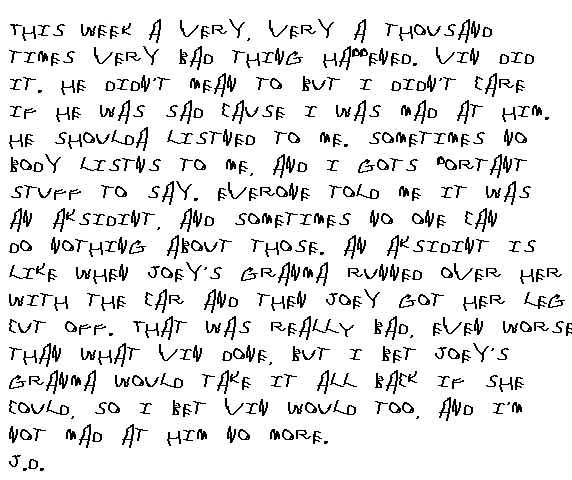 THIS WEEK A VERY, VERY A THOUSAND
TIMES VERY BAD THING HAPPENED. VIN DID
IT. HE DIDN'T MEAN TO BUT I DIDN'T CARE
IF HE WAS SAD CAUSE I WAS MAD AT HIM.
HE SHOULDA LISTNED TO ME. SOMETIMES NO
BODY LISTNS TO ME, AND I GOTS PORTANT
STUFF TO SAY. EVERONE TOLD ME IT WAS
AN AKSIDINT, AND SOMETIMES NO ONE CAN
DO NOTHING ABOUT THOSE. AN AKSIDINT IS
LIKE WHEN JOEY'S GRANMA RUNNED OVER HER
WITH THE CAR AND THEN JOEY GOT HER LEG
CUT OFF. THAT WAS REALLY BAD, EVEN WORSE
THAN WHAT VIN DONE, BUT I BET JOEY'S
GRANMA WOULD TAKE IT ALL BACK IF SHE
COULD, SO I BET VIN WOULD TOO, AND I'M
NOT MAD AT HIM NO MORE.
J.D.